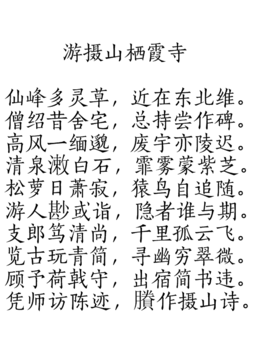 游摄山栖霞寺
仙峰多灵草，近在东北维。
僧绍昔舍宅，总持尝作碑。
高风一缅邈，废宇亦陵迟。
清泉潄白石，霏雾蒙紫芝。
松萝日萧寂，猿鸟自追随。
游人尠或诣，隐者谁与期。
支郎笃清尚，千里孤云飞。
览古玩青简，寻幽穷翠微。
顾予荷戟守，出宿简书违。
凭师访陈迹，賸作摄山诗。